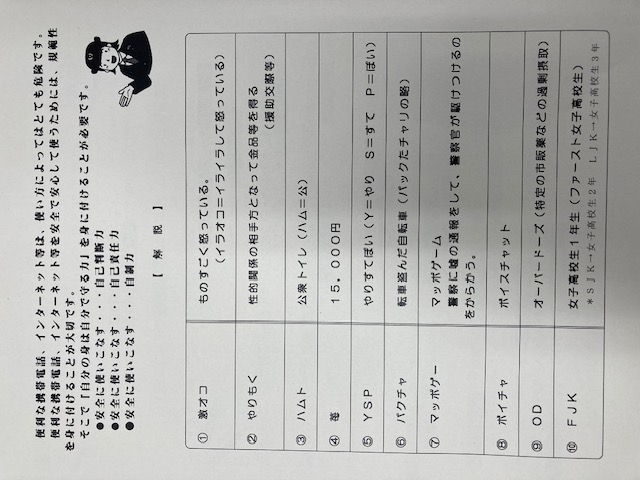 便利な携帯電話、インターネット等は、使い方によってはとても危険です。
便利な携帯電話、インターネット等を安全で安心して使うためには、規範性
を身に付けることが大切です。
そこで「自分の身は自分で守る力」を身に付けることが必要です。
●安全に使いこなす・・・自己判断力
●安全に使いこなす・・・自己責任力
●安全に使いこなす・・・自制力
【 解 説 】
① 激オコ ものすごく怒っている。
(イラオコ=イライラして怒っている)
② やりもく 性的関係の相手方となって金品等を得る
(援助交際等)
③ ハムト 公衆トイレ(ハム=公)
④ 苺 15.000円
⑤ YSP やりすてぽい(Y=やり S=すて P=ぽい)
⑥ パクチャ 自転車盗んだ自転車(パックたチャリの略)
⑦ マッポゲー マッポゲーム
警察に嘘の通報をして、警察官が駆けつけるの
をからかう。
⑧ ボイチャ ボイスチャット
⑨ OD オーバードーズ(特定の市販薬などの過剰摂取)
⑩ FJK 女子高校1年生(ファースト女子高校生)
*SJK→女子高校生2年 LJK→女子高校生3年